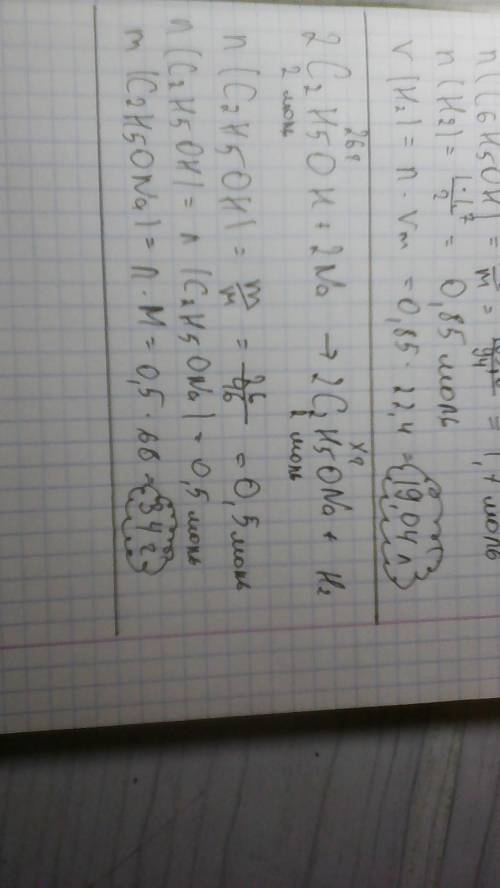 n(C6H5OH) = m/M = = 1,7 моль
n(H2) = 1,7/2 = 0,85 моль
V(H2) = n · Vm = 0,85 · 22,4 = 19,04 л
26г хг
2C2H5OH + 2Na → 2C2H5ONa + H2
2 моль моль
n(C2H5OH) = m/M = 26/46 = 0,5 моль
n(C2H5OH) = n(C2H5ONa) = 0,5 моль
m(C2H5ONa) = n · M = 0,5 · 68 = 34 г